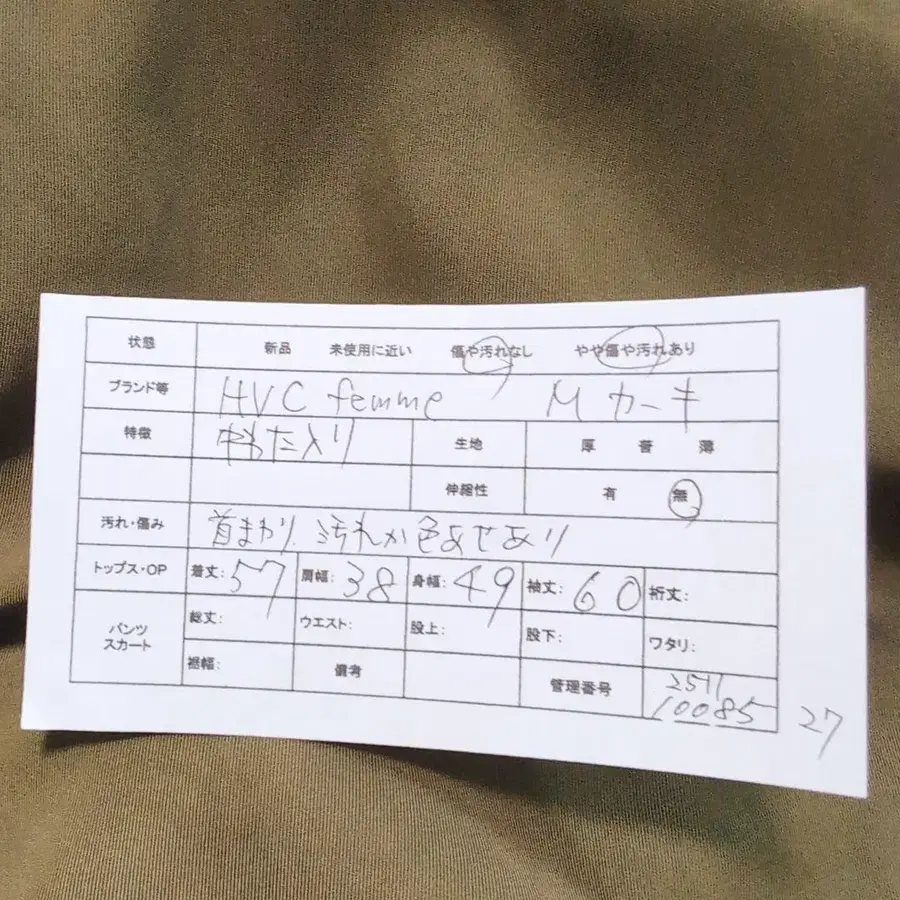 状態 新品 未使用に近い 傷や汚れなし やや傷や汚れあり
ブランド等 HVC femme M カーキ
特徴 中わた入り 生地 厚 普 薄
伸縮性 有 無
汚れ・傷み 首まわり 汚れか色あせあり
トップス・OP 着丈: 57 肩幅: 38 身幅: 49 袖丈: 60 裄丈:
パンツ スカート 総丈: ウエスト: 股上: 股下: ワタリ:
裾幅: 備考 管理番号 2511
10085 27